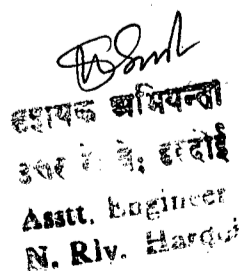 सहायक अभियन्ता
उत्तर रे० वे; हरदोई
Asstt. Engineer
N. Rly. Hardoi